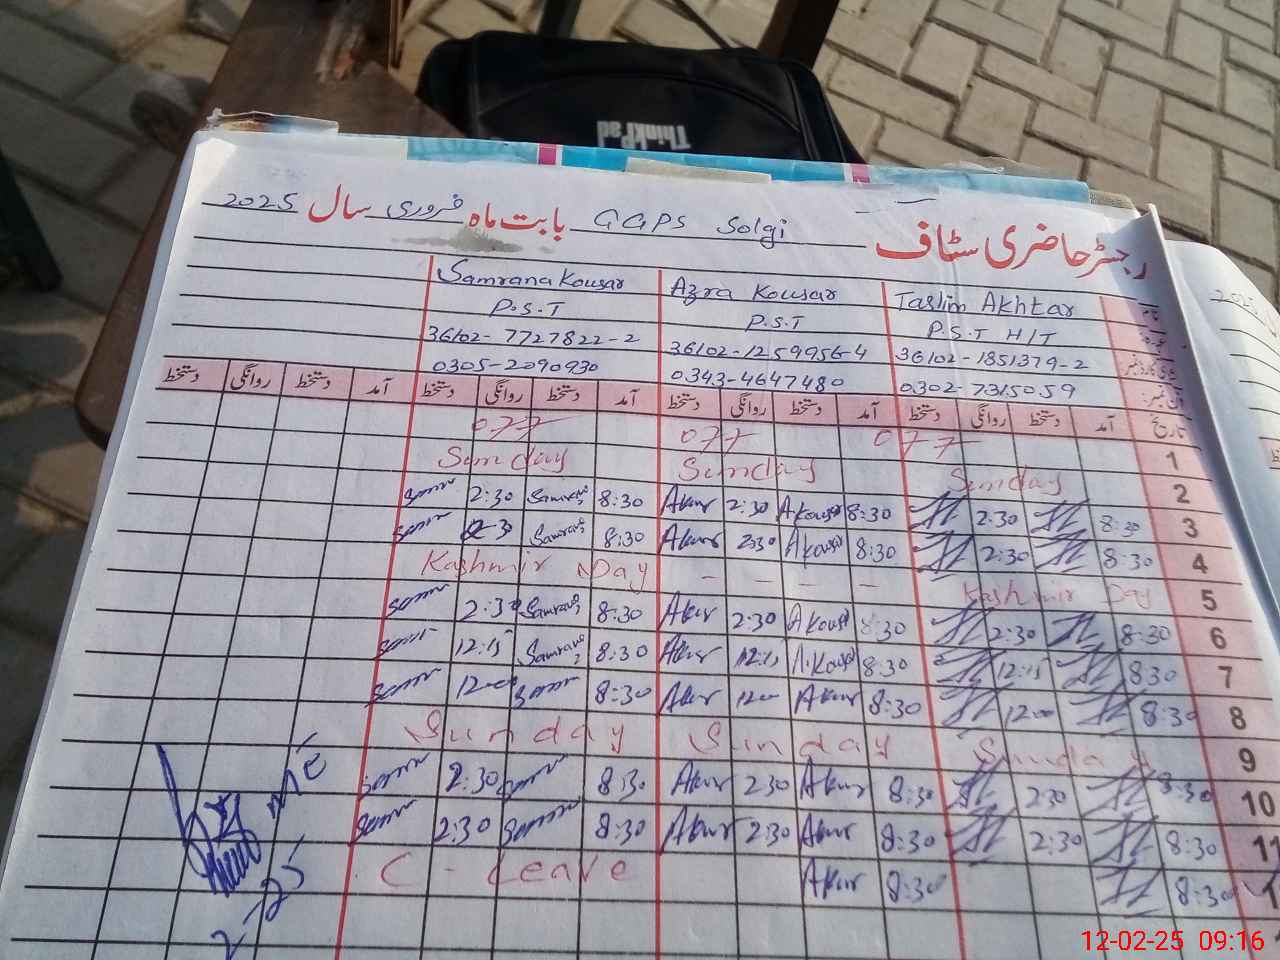 ThinkPad
رجسٹر حاضری سٹاف GGPS Solgi بابت ماہ فروری سال 2025
Taslim Akhtar Azra Kousar Samrana Kousar
P.S.T H/T P.S.T P.S.T
36102-1851379-2 36102-1259956-4 36102-7727822-2
0302-7315059 0343-4647480 0305-2090930
تاریخ آمد دستخط روانگی دستخط آمد دستخط روانگی دستخط آمد دستخط روانگی دستخط آمد دستخط روانگی دستخط
1
2 Sunday Sunday Sunday
3 8:30 2:30 8:30 Akousar 2:30 Akur 8:30 Samrana 2:30 Sam
4 8:30 2:30 8:30 Akousar 2:30 Akur 8:30 Samrana 2:30 Sam
5 Kashmir Day - - - - Kashmir Day
6 8:30 2:30 8:30 Akousar 2:30 Akur 8:30 Samrana 2:30 Sam
7 8:30 12:15 8:30 A.Kousar 12:15 Akur 8:30 Samrana 12:15 Sam
8 8:30 12:00 8:30 Akur 12:00 Akur 8:30 Sam 12:00 Sam
9 Sunday Sunday Sunday
10 8:30 2:30 8:30 Akur 2:30 Akur 8:30 Sam 2:30 Sam
11 8:30 2:30 8:30 Akur 2:30 Akur 8:30 Sam 2:30 Sam
8:30 8:30 Akur C-Leave
12-02-25 09:16